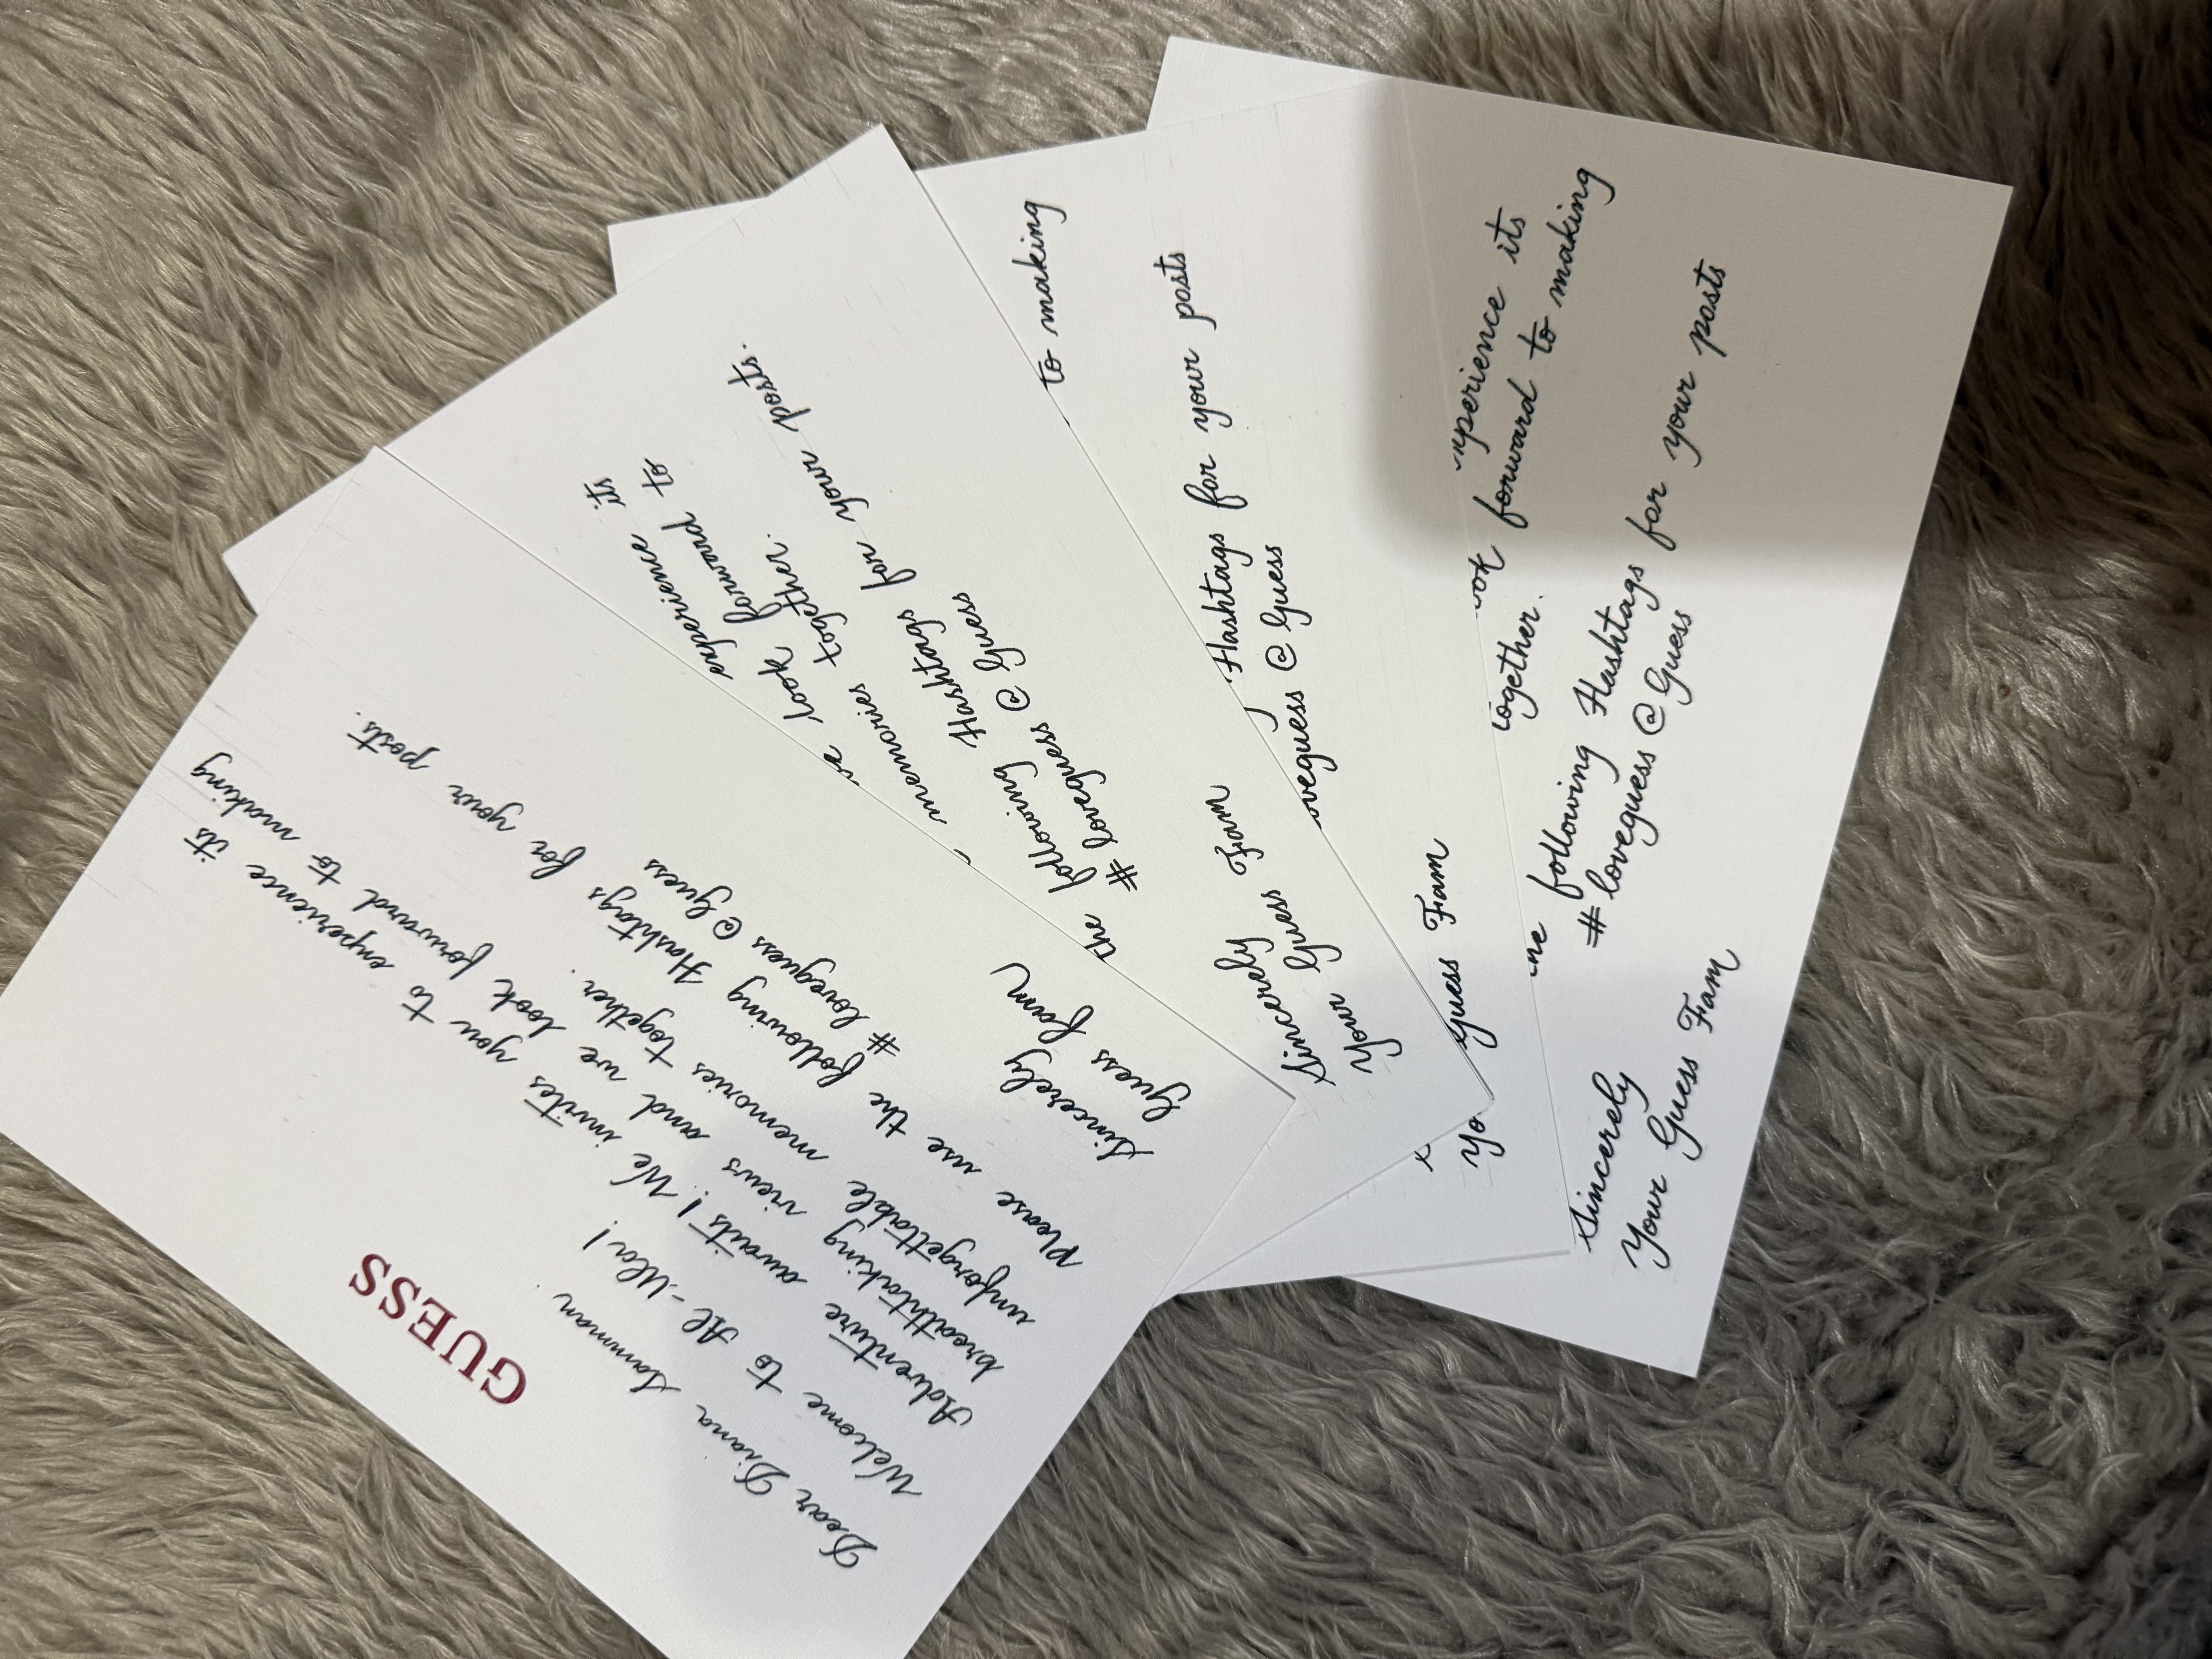 GUESS
Dear Diana
Welcome to Al-Ula!
Adventure awaits! We invites you to experience its
breathtaking views and we look forward to making
unforgettable memories together.
Please use the following Hashtags for your posts.
# loveguess @ Guess
Sincerely
Guess fam
experience its
look forward to
memories together.
the following Hashtags for your posts.
# loveguess @ Guess
Sincerely
Your Guess Fam
to making
Hashtags for your posts
oveguess @ Guess
Yo Guess Fam
xperience its
ook forward to making
together.
following Hashtags for your posts
# loveguess @ Guess
Sincerely
Your Guess Fam